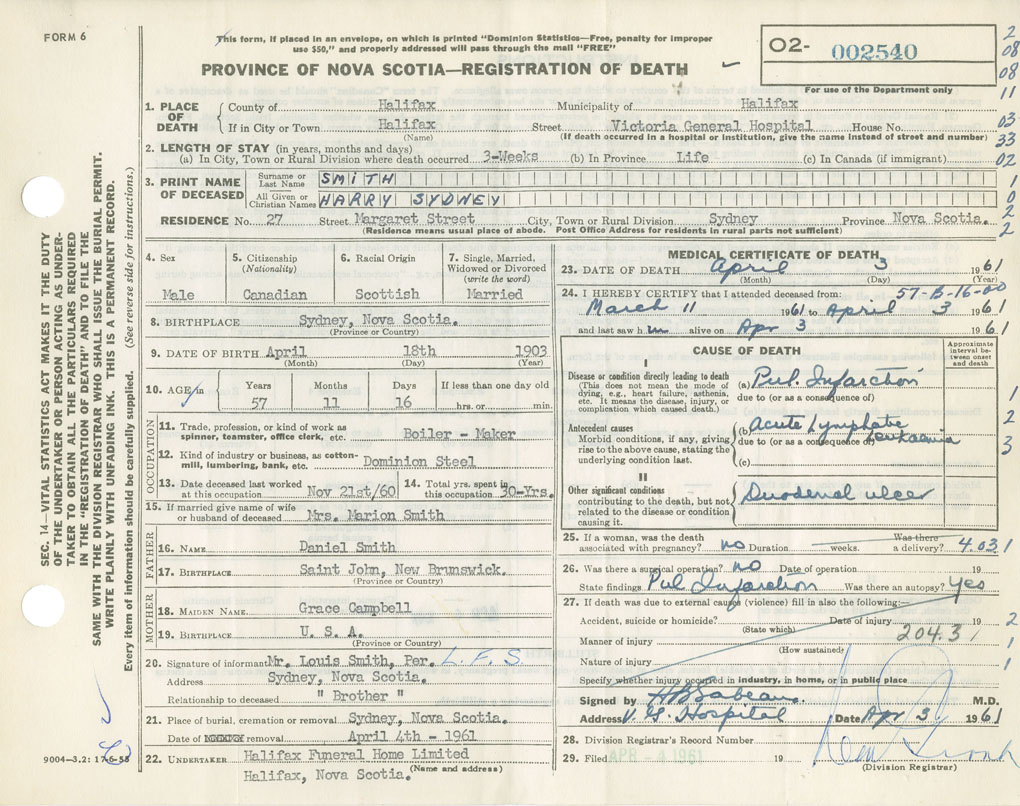 FORM 6
This form, if placed in an envelope, on which is printed "Dominion Statistics—Free, penalty for improper
use $50," and properly addressed will pass through the mail "FREE"
PROVINCE OF NOVA SCOTIA—REGISTRATION OF DEATH
02- 002540
For use of the Department only
1. PLACE OF DEATH
County of Halifax Municipality of Halifax
If in City or Town Halifax Street Victoria General Hospital House No.
(Name) (If death occurred in a hospital or institution, give the name instead of street and number)
2. LENGTH OF STAY (in years, months and days)
(a) In City, Town or Rural Division where death occurred 3-Weeks (b) In Province Life (c) In Canada (if immigrant)
3. PRINT NAME OF DECEASED
Surname or Last Name SMITH
All Given or Christian Names HARRY SYDNEY
RESIDENCE No. 27 Street Margaret Street City, Town or Rural Division Sydney Province Nova Scotia.
(Residence means usual place of abode. Post Office Address for residents in rural parts not sufficient)
2
08
08
11
03
33
02
1
0
2
2
SEC. 14—VITAL STATISTICS ACT MAKES IT THE DUTY
OF THE UNDERTAKER OR PERSON ACTING AS UNDER-
TAKER TO OBTAIN ALL THE PARTICULARS REQUIRED
IN THE "REGISTRATION OF DEATH" AND TO FILE THE
SAME WITH THE DIVISION REGISTRAR WHO SHALL ISSUE THE BURIAL PERMIT.
WRITE PLAINLY WITH UNFADING INK. THIS IS A PERMANENT RECORD.
Every item of information should be carefully supplied. (See reverse side for instructions.)
4. Sex
Male
5. Citizenship
(Nationality)
Canadian
6. Racial Origin
Scottish
7. Single, Married, Widowed or Divorced
(write the word)
Married
8. BIRTHPLACE Sydney, Nova Scotia.
(Province or Country)
9. DATE OF BIRTH April 18th 1903
(Month) (Day) (Year)
10. AGE in Years Months Days If less than one day old
57 11 16 hrs. or min.
OCCUPATION
11. Trade, profession, or kind of work as
spinner, teamster, office clerk, etc. Boiler - Maker
12. Kind of industry or business, as cotton-
mill, lumbering, bank, etc. Dominion Steel
13. Date deceased last worked
at this occupation Nov 21st/60
14. Total yrs. spent in
this occupation 30-Yrs.
15. If married give name of wife
or husband of deceased Mrs. Marion Smith
FATHER
16. NAME Daniel Smith
17. BIRTHPLACE Saint John, New Brunswick.
(Province or Country)
MOTHER
18. MAIDEN NAME Grace Campbell
19. BIRTHPLACE U. S. A.
(Province or Country)
20. Signature of informant Mr. Louis Smith, Per. L.F.S.
Address Sydney, Nova Scotia.
Relationship to deceased " Brother "
21. Place of burial, cremation or removal Sydney, Nova Scotia.
Date of removal April 4th - 1961
22. UNDERTAKER Halifax Funeral Home Limited
Halifax, Nova Scotia. (Name and address)
9004—3.2: 17-6-58
MEDICAL CERTIFICATE OF DEATH
23. DATE OF DEATH April 3 1961
(Month) (Day) (Year)
24. I HEREBY CERTIFY that I attended deceased from: 57-B-16-00
March 11 1961 to April 3 1961
and last saw him alive on Apr 3 1961
CAUSE OF DEATH
Approximate interval between onset and death
I
Disease or condition directly leading to death
(This does not mean the mode of
dying, e.g., heart failure, asthenia,
etc. It means the disease, injury, or
complication which caused death.)
(a) Pul. Infarction
due to (or as a consequence of)
Antecedent causes
Morbid conditions, if any, giving
rise to the above cause, stating the
underlying condition last.
(b) Acute Lymphatic Leukaemia
due to (or as a consequence of)
(c)
II
Other significant conditions
contributing to the death, but not
related to the disease or condition
causing it.
Duodenal ulcer
1
2
3
25. If a woman, was the death Was there
associated with pregnancy? no Duration weeks. a delivery? 4.03 1
26. Was there a surgical operation? no Date of operation 19
State findings Pul Infarction Was there an autopsy? Yes
27. If death was due to external causes (violence) fill in also the following:—
Accident, suicide or homicide? Date of injury 19 2
(State which)
Manner of injury 204.3 1
(How sustained)
Nature of injury 1
Specify whether injury occurred in industry, in home, or in public place
Signed by H B Sabean M.D.
Address V. G. Hospital Date Apr 3 1961
28. Division Registrar's Record Number
29. Filed APR 4 1961 19
(Division Registrar)